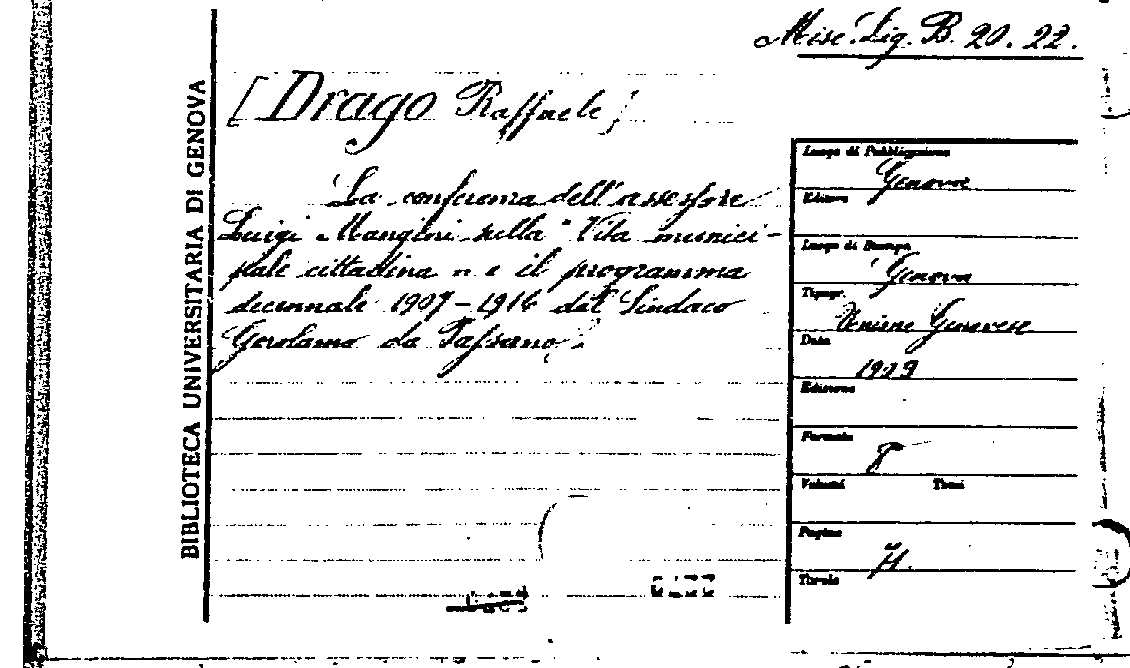 Misc. Lig. B. 20. 22.
[Drago Raffaele]
La conferenza dell'assessore
Luigi Mangini sulla "Vita munici-
pale cittadina" e il programma
decennale 1907-1916 del Sindaco
Gerolamo da Passano.
BIBLIOTECA UNIVERSITARIA DI GENOVA
Luogo di Pubblicazione
Genova
Editore
Luogo di Stampa
Genova
Tipogr.
Unione Genovese
Data
Edizione
Formato
8
Volumi Tomi
Pagine
Tavole